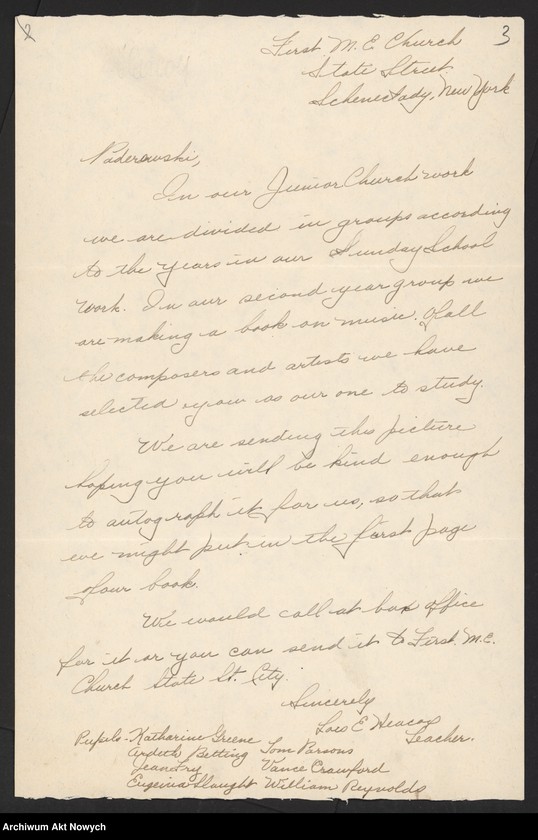 2
3
First M. E Church
State Street
Schenectady, New York
Paderewski,
In our Junior Church work
we are divided in groups according
to the years in our Sunday School
work. In our second year group we
are making a book on music. Of all
the composers and artists we have
selected you as our one to study.
We are sending this picture
hoping you will be kind enough
to autograph it for us, so that
we might put in the first page
of our book.
We would call at box office
for it or you can send it to First M.E.
Church State St. City.
Sincerely
Lois E Heacox
Teacher.
Pupils - Katharine Greene
Ardeth Betting Tom Parsons
Jean Fry Vance Crawford
Eugenia Slaught William Reynolds
Archiwum Akt Nowych